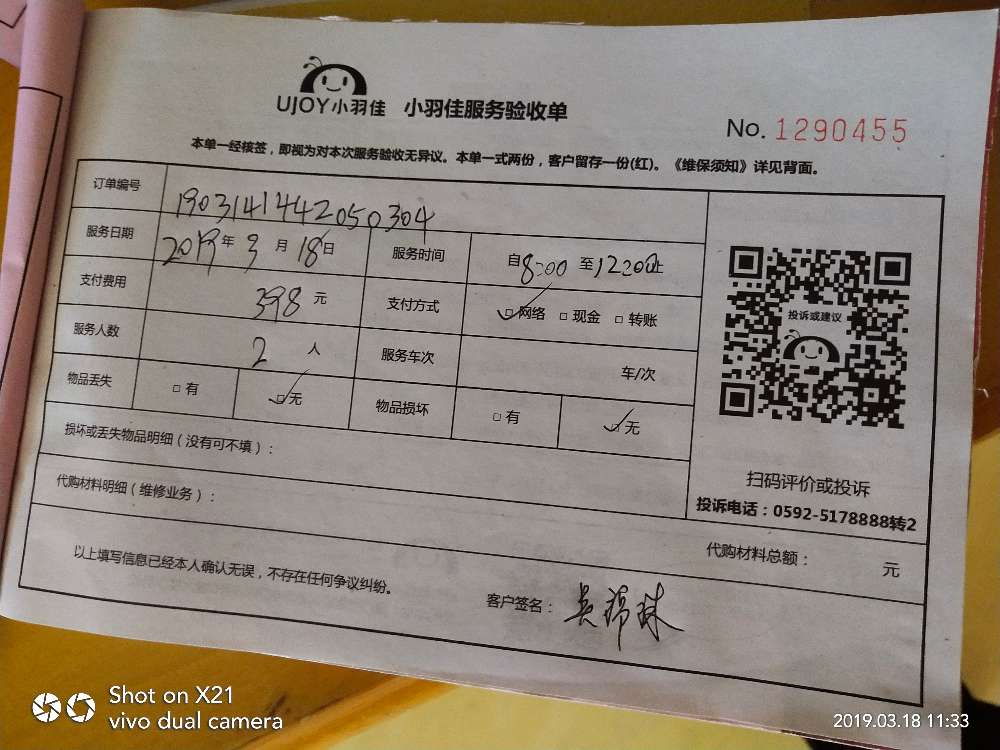 UJOY小羽佳 小羽佳服务验收单
No. 1290455
本单一经核签，即视为对本次服务验收无异议。本单一式两份，客户留存一份(红)。《维保须知》详见背面。
订单编号 1903141442050304
服务日期 2019年3月18日 服务时间 自8:00至12:00止
支付费用 398元 支付方式 网络 现金 转账
服务人数 2人 服务车次 车/次
物品丢失 有 无 物品损坏 有 无
损坏或丢失物品明细（没有可不填）：
投诉或建议
扫码评价或投诉
投诉电话：0592-5178888转2
代购材料明细（维修业务）：
代购材料总额： 元
以上填写信息已经本人确认无误，不存在任何争议纠纷。
客户签名：吴锦珠
Shot on X21
vivo dual camera
2019.03.18 11:33